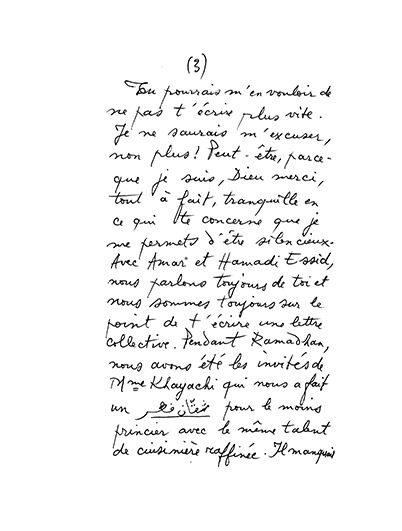 (3)
Tu pourrais m'en vouloir de
ne pas t'écrire plus vite.
Je ne saurais m'excuser,
non plus! Peut-être, parce-
que je suis, Dieu merci,
tout à fait, tranquille en
ce qui te concerne que je
me permets d'être silencieux.
Avec Amar et Hamadi Essid,
nous parlons toujours de toi et
nous sommes toujours sur le
point de t'écrire une lettre
collective. Pendant Ramadhan,
nous avons été les invités de
Mme Khayachi qui nous a fait
un pour le moins
princier avec le même talent
de cuisinière raffinée. Il manquait